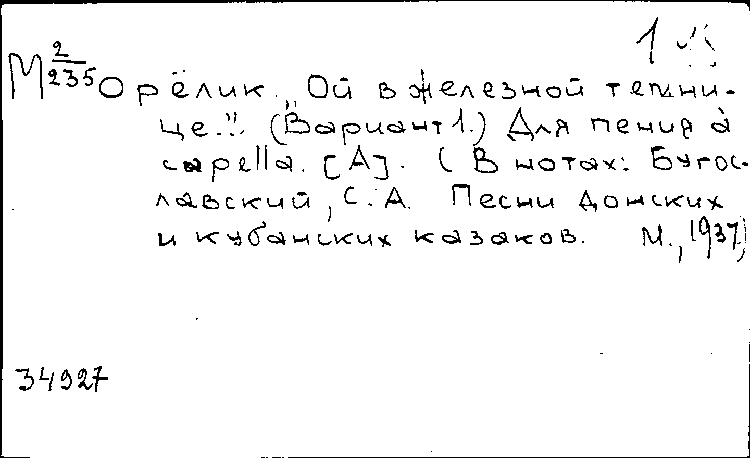 1
М 2/235 Орёлик. „Ой в железной темни-
це..." (Вариант 1.) Для пения à
capella. [А]. (В нотах: Бугос-
лавский, С.А. Песни донских
и кубанских казаков. М., 1937)
34927